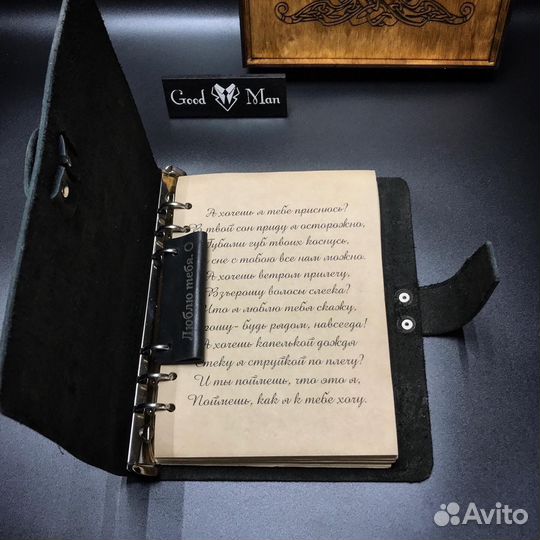 Good Man
А хочешь я тебе приснюсь?
В твой сон приду я осторожно,
Губами губ твоих коснусь,
сне с тобою все нам можно.
А хочешь ветром прилечу,
Взъерошу волосы слегка?
Что я люблю тебя скажу,
рошу- будь рядом, навсегда!
А хочешь капелькой дождя
Стеку я струйкой по плечу?
И ты поймешь, что это я,
Поймешь, как я к тебе хочу.
Люблю тебя. О
Avito